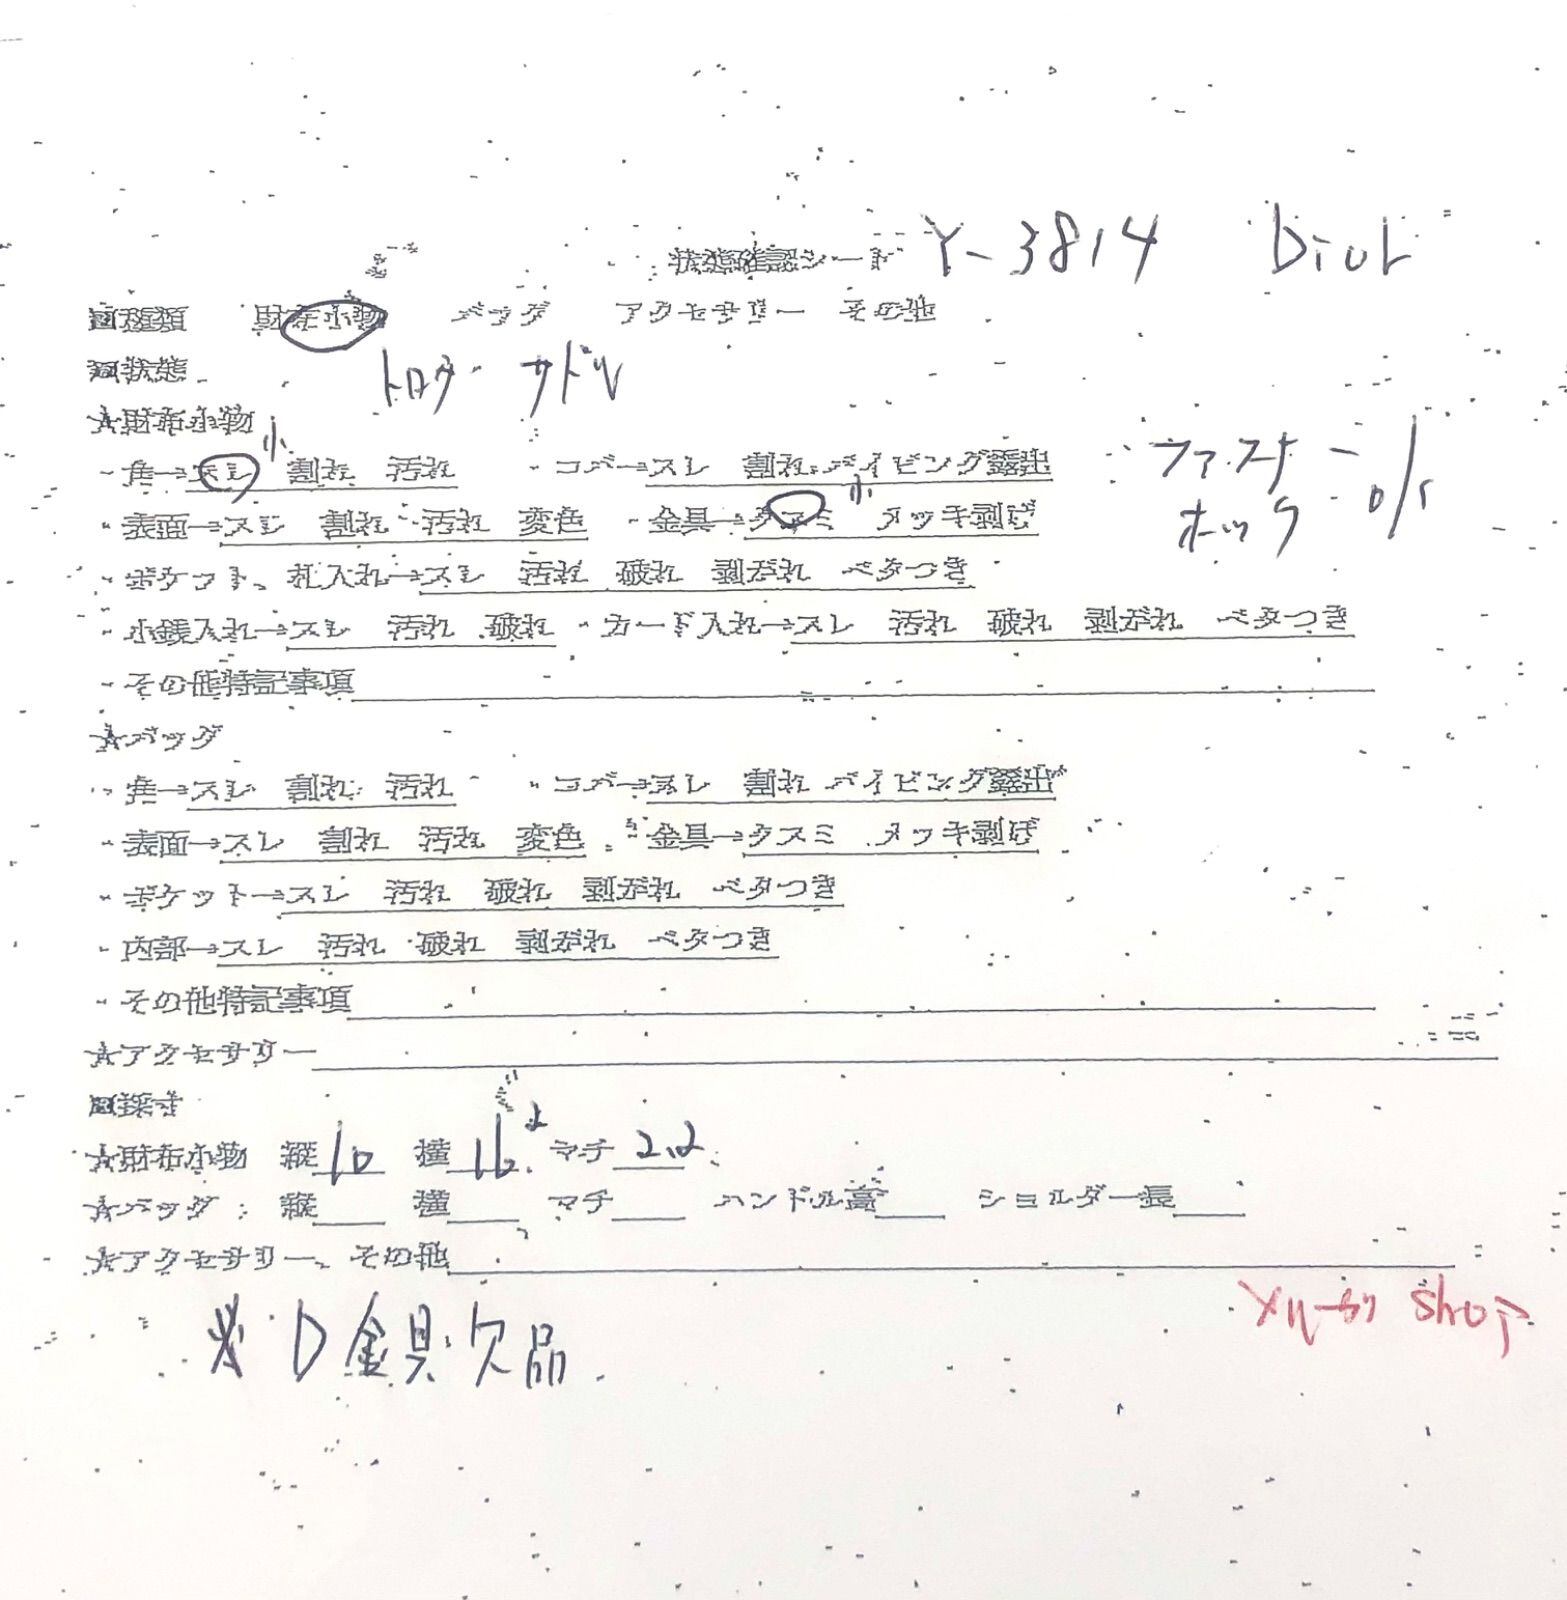 状態確認シート Y-3814 Dior
□種類 財布小物 バッグ アクセサリー その他
□状態 トロター サドル
★財布小物
・角→スレ 小 割れ 汚れ ・コバ→スレ 割れ パイピング露出 ファスナー
・表面→スレ 割れ 汚れ 変色 ・金具→クスミ 小 メッキ剥げ ホック
・ポケット、札入れ→スレ 汚れ 破れ 剥がれ ベタつき
・小銭入れ→スレ 汚れ 破れ ・カード入れ→スレ 汚れ 破れ 剥がれ ベタつき
・その他特記事項
★バッグ
・角→スレ 割れ 汚れ ・コバ→スレ 割れ パイピング露出
・表面→スレ 割れ 汚れ 変色 ・金具→クスミ メッキ剥げ
・ポケット→スレ 汚れ 破れ 剥がれ ベタつき
・内部→スレ 汚れ 破れ 剥がれ ベタつき
・その他特記事項
★アクセサリー
□採寸
★財布小物 縦10 横16.2 マチ2.2
★バッグ 縦 横 マチ ハンドル高 ショルダー長
★アクセサリー、その他
shop
※D金具欠品